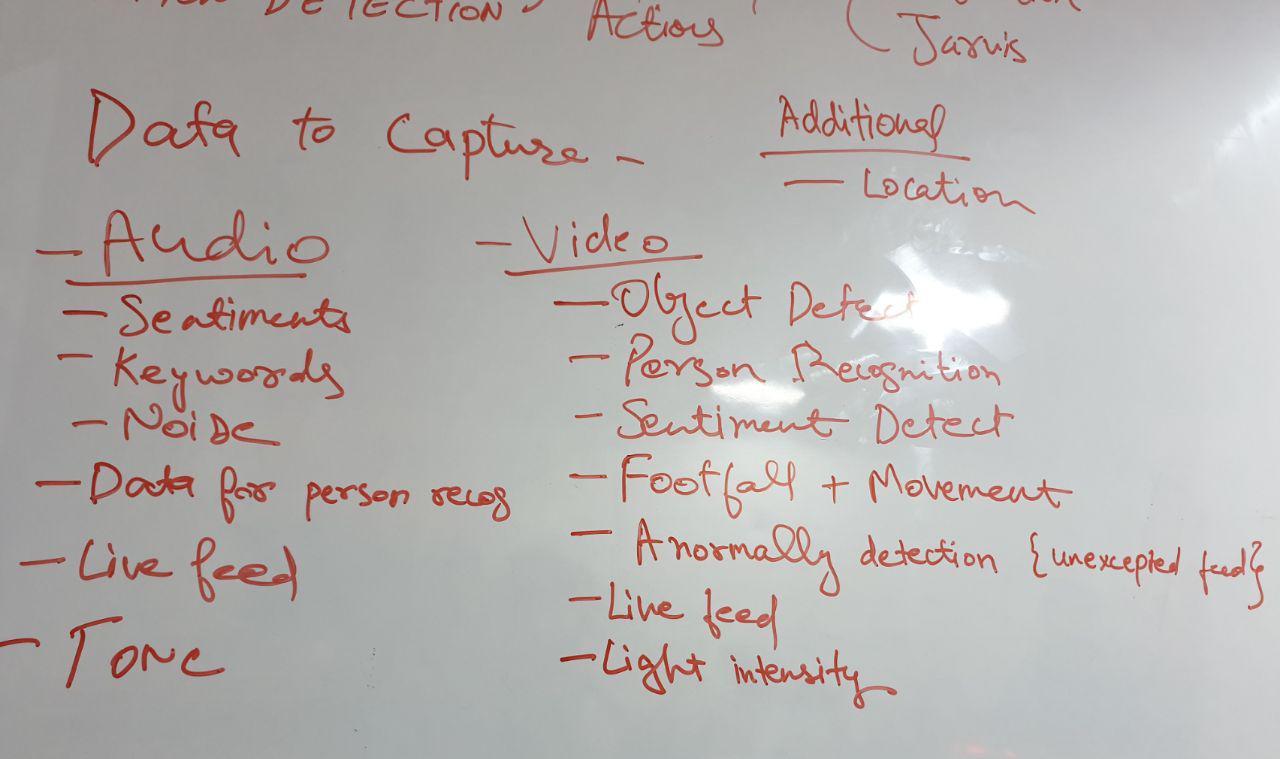 DETECTION
Actions
Jarvis
Data to Capture -
Additional
— Location
- Audio
- Sentiments
- Keywords
- Noise
- Data for person recog
- Live feed
- Tone
- Video
- Object Detect
- Person Recognition
- Sentiment Detect
- Footfall + Movement
- Anormally detection {unexcepted feed}
- Live feed
- Light intensity